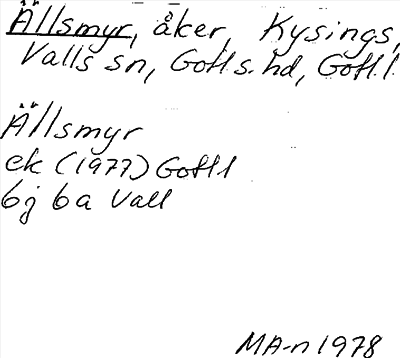 Ällsmyr, åker, Kysings,
Valls sn, Gotl s. hd, Gotl. l
Ällsmyr
ek (1977) Gotl l
6j 6a Vall
MA-n 1978